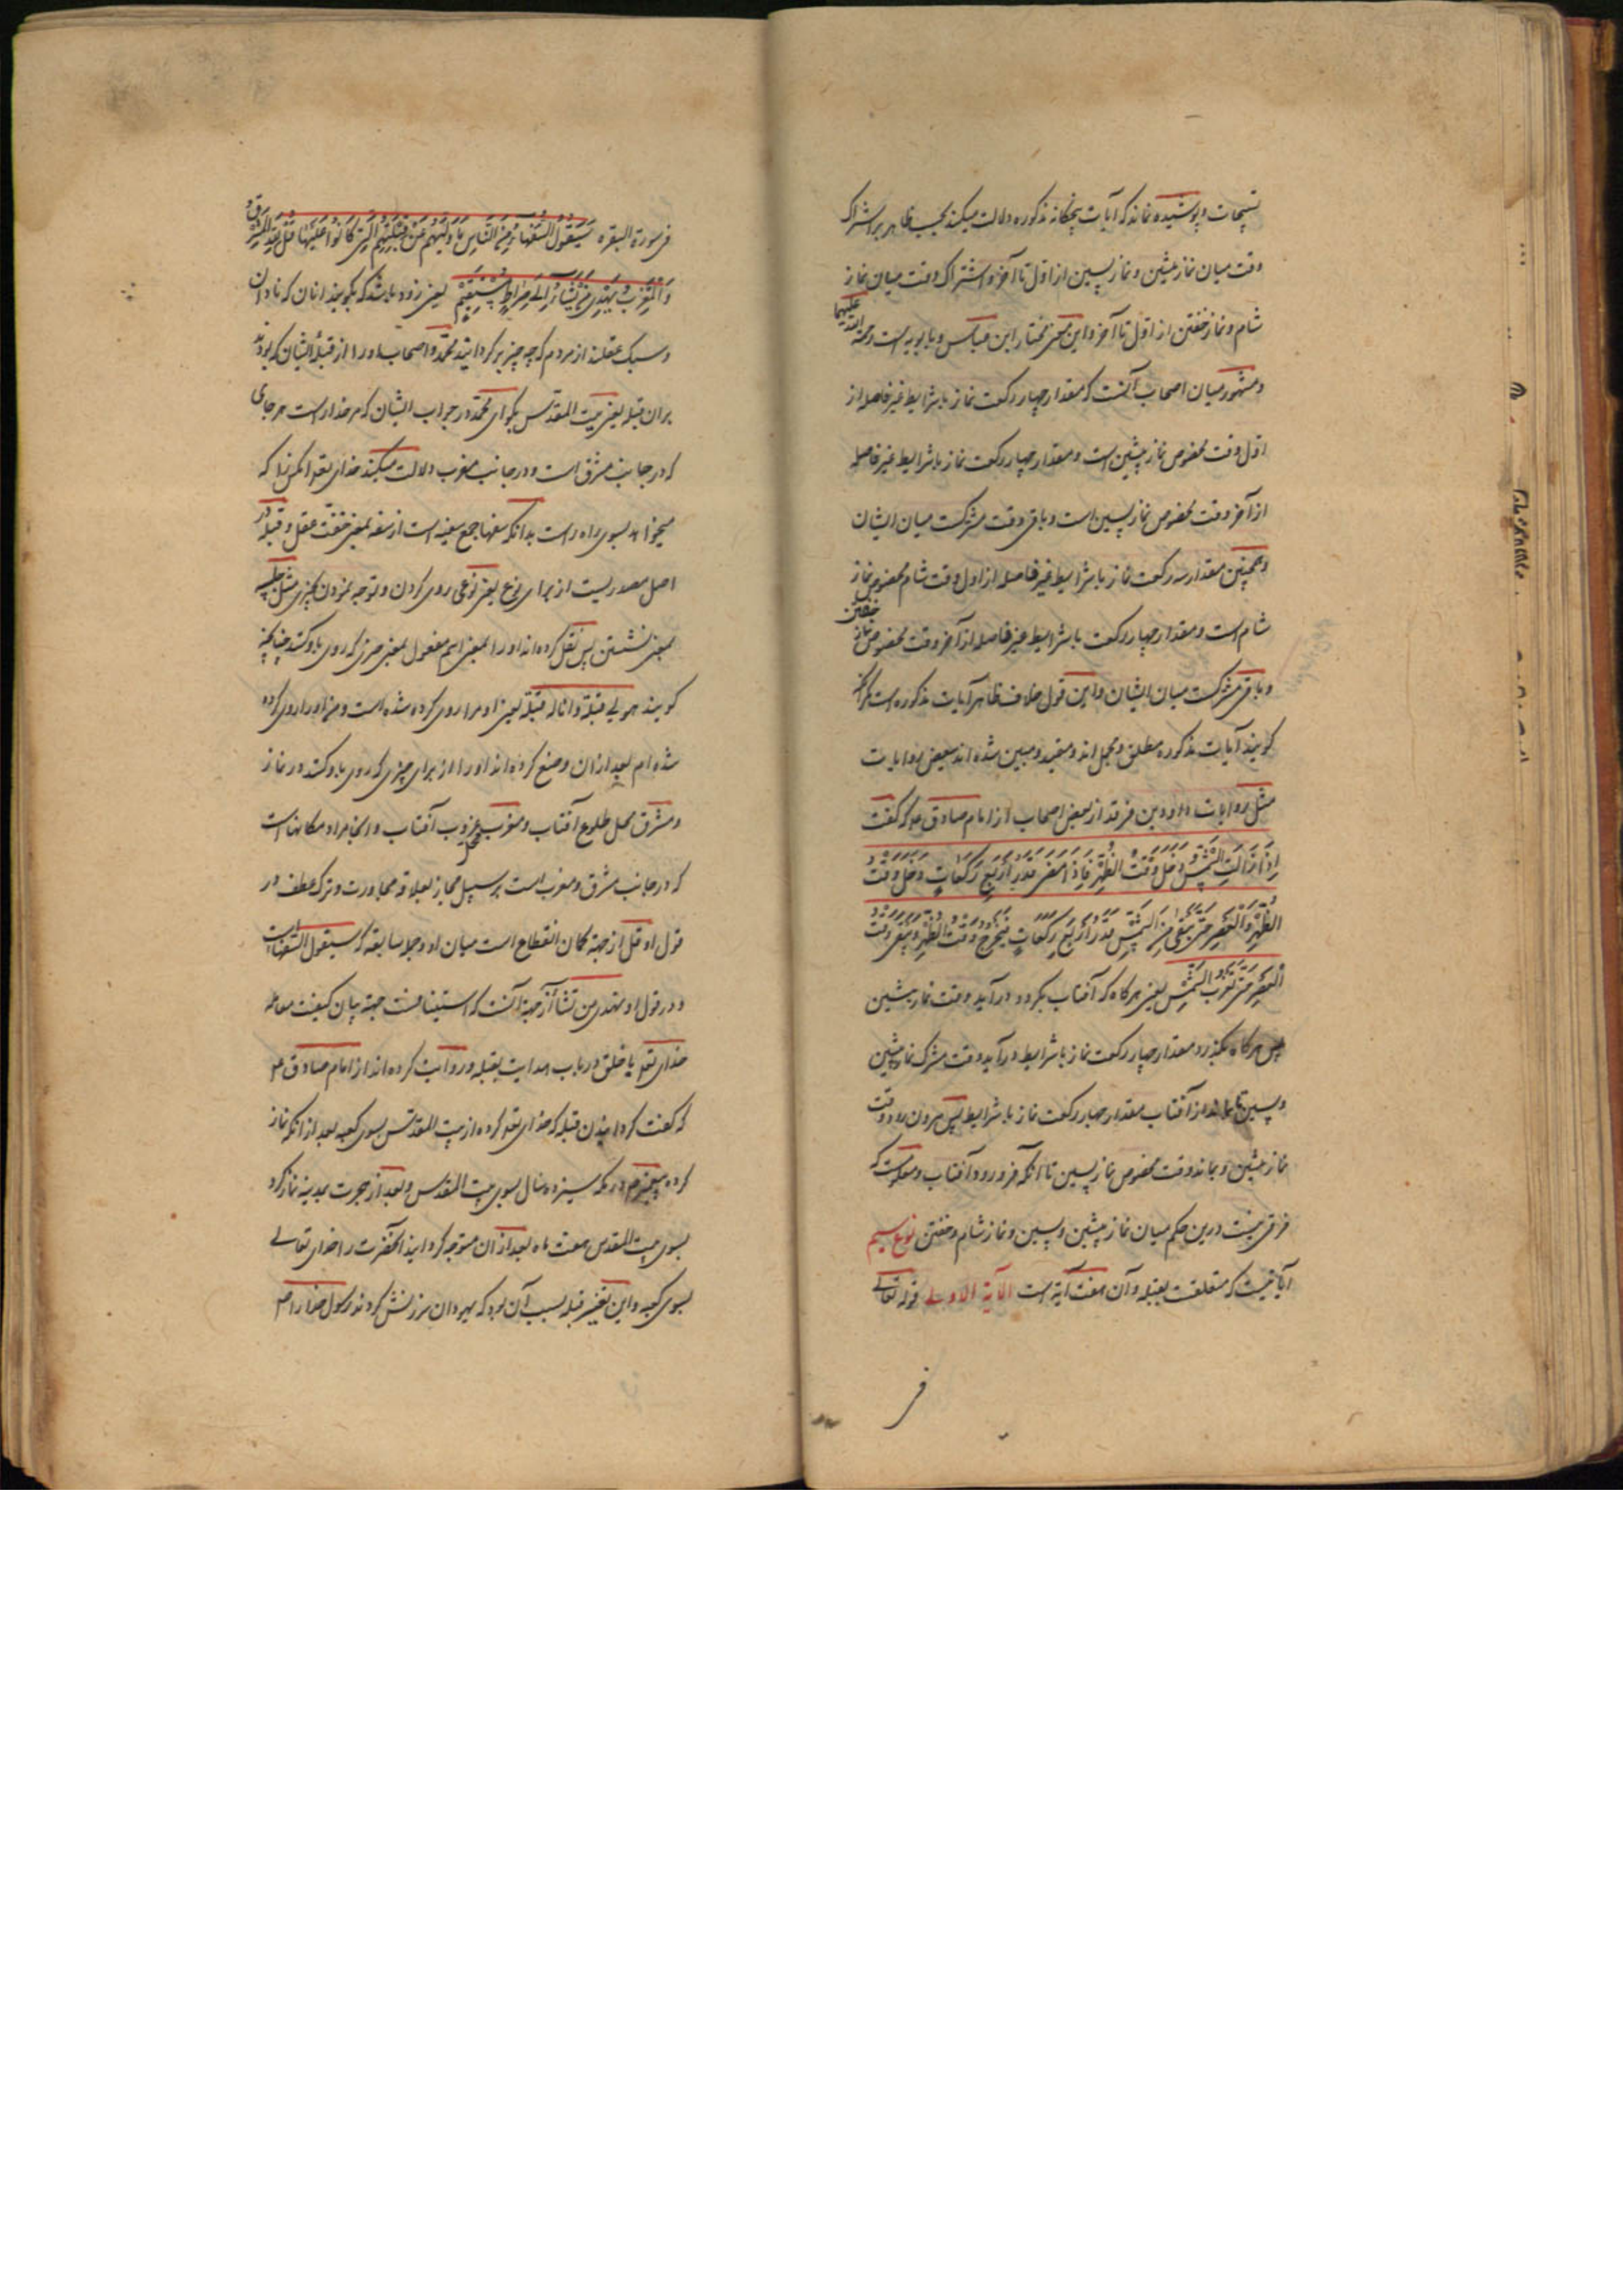 تسبیحات و پوشیده نماند که آیات پنجگانه مذکوره دلالت میکند بحسب ظاهر بر اشتراک
وقت میان نماز پیشین و نماز پسین از اول تا آخر و اشتراک وقت میان نماز
شام و نماز خفتن از اول تا آخر و این معنی مختار ابن عباس و بابویه است رحمة الله علیهما
و مشهور میان اصحاب آنست که مقدار چهار رکعت نماز با شرایط غیر فاصله از
اول وقت مخصوص نماز پیشین است و مقدار چهار رکعت نماز با شرایط غیر فاصله
از آخر وقت مخصوص نماز پسین است و باقی وقت مشترکست میان ایشان
و همچنین مقدار سه رکعت نماز با شرایط غیر فاصله از اول وقت شام مخصوص نماز
شام است و مقدار چهار رکعت با شرایط غیر فاصله از آخر وقت مخصوص نماز خفتن
و باقی مشترکست میان ایشان و این قول خلاف ظاهر آیات مذکوره است مگر آنکه
گویند آیات مذکوره مطلق و مجمل اند و مقید و مبین شده اند ببعض روایات
مثل روایات داود بن فرقد از بعض اصحاب از امام صادق ع که گفت
اِذَا زَالَتِ الشَّمْسُ دَخَلَ وَقْتُ الظُّهْرِ فَاِذَا مَضَى قَدْرُ اَرْبَعِ رَكَعَاتٍ دَخَلَ وَقْتُ
الظُّهْرِ وَالْعَصْرِ حَتّى يَبْقى مِنَ الشَّمْسِ قَدْرُ اَرْبَعِ رَكَعَاتٍ فَيَخْرُجُ وَقْتُ الظُّهْرِ وَيَبْقى وَقْتُ
الْعَصْرِ حَتّى تَغْرُبَ الشَّمْسُ یعنی هرگاه که آفتاب بگردد درآید وقت نماز پیشین
پس هرگاه بگذرد مقدار چهار رکعت نماز با شرایط درآید وقت مشترک نماز پیشین
و پسین تا بماند از آفتاب مقدار چهار رکعت نماز با شرایط پس بیرون رود وقت
نماز پیشین و بماند وقت مخصوص نماز پسین تا آنکه فرو رود آفتاب و معلومست که
فرقی نیست درین حکم میان نماز پیشین و پسین و نماز شام و خفتن نوع سیم
آیاتیست که متعلقست بقبله و آن هفت آیه است الآیة الاولی قوله تعالی
فی
فی سورة البقره سَيَقُولُ السُّفَهَاءُ مِنَ النَّاسِ مَا وَلّيهُمْ عَنْ قِبْلَتِهِمُ الَّتِي كَانُوا عَلَيْهَا قُلْ لِلّهِ الْمَشْرِقُ
وَالْمَغْرِبُ يَهْدِي مَنْ يَشَاءُ اِلَى صِرَاطٍ مُسْتَقِيمٍ یعنی زود باشد که بگویند انان که نادان
و سبک عقلند از مردم که چه چیز برگردانید محمد و اصحاب او را از قبله ایشان که بودند
بران قبله یعنی بیت المقدس بگو ای محمد در جواب ایشان که مر خدا راست هر جای
که در جانب مشرق است و در جانب مغرب دلالت میکند خدای تعو آنکس را که
میخواهد بسوی راه راست بدانکه سفها جمع سفیه است از سفه بمعنی خفت عقل و قبله در
اصل مصدریست از برای نوع یعنی نوعی روی کردن و توجه نمودن بچیزی مثل جلسه
بمعنی نشستن پس نقل کرده اند او را بمعنی اسم مفعول بمعنی چیزی که روی باو کنند چنانچه
گویند هو لی قبلة و انا له قبلة یعنی او مرا روی کرده شده است و من او را روی کرده
شده ام بعد ازان وضع کرده اند او را از برای چیزی که روی باو کنند در نماز
و مشرق محل طلوع آفتاب و مغرب محل غروب آفتاب و اینجا مراد مکانهاست
که در جانب مشرق و مغرب است بر سبیل مجاز بعلاقه مجاورت و ترک عطف در
قول او قل از جهة کمان انقطاع است میان او و جمله سابقه که سیقول السفهاست
و در قول او یهدی من یشاء از جهة آنست که استینافست جهة بیان کیفیت معامله
خدای تعو با خلق در باب هدایت بقبله و روایت کرده اند از امام صادق ع
که گفت گردانیدن قبله که خدای تعو کرده از بیت المقدس بسوی کعبه بعد از آنکه نماز
کرده پیغمبر ص در مکه سیزده سال بسوی بیت المقدس و بعد از هجرت بمدینه نماز کرد
بسوی بیت المقدس هفت ماه بعد ازان متوجه گردانید آنحضرت را خدای تعالی
بسوی کعبه و این تغییر قبله بسبب آن بود که یهودان سرزنش کردند رسول خدا را ص